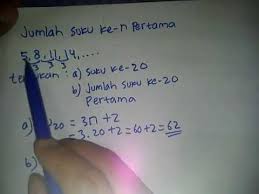 Jumlah suku ke-n pertama
5, 8, 11, 14, ....
3 3 3
: a) Suku ke-20
b) Jumlah suku ke-20
Pertama
a) U20 = 3n + 2
= 3.20 + 2 = 60 + 2 = 62
b)